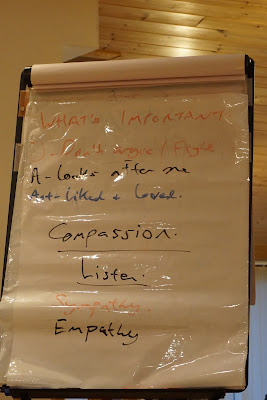 WHAT'S IMPORTANT
J- Don't argue / Fight
A- looks after me
Art- Liked + Loved.
Compassion.
Listen.
Sympathy.
Empathy